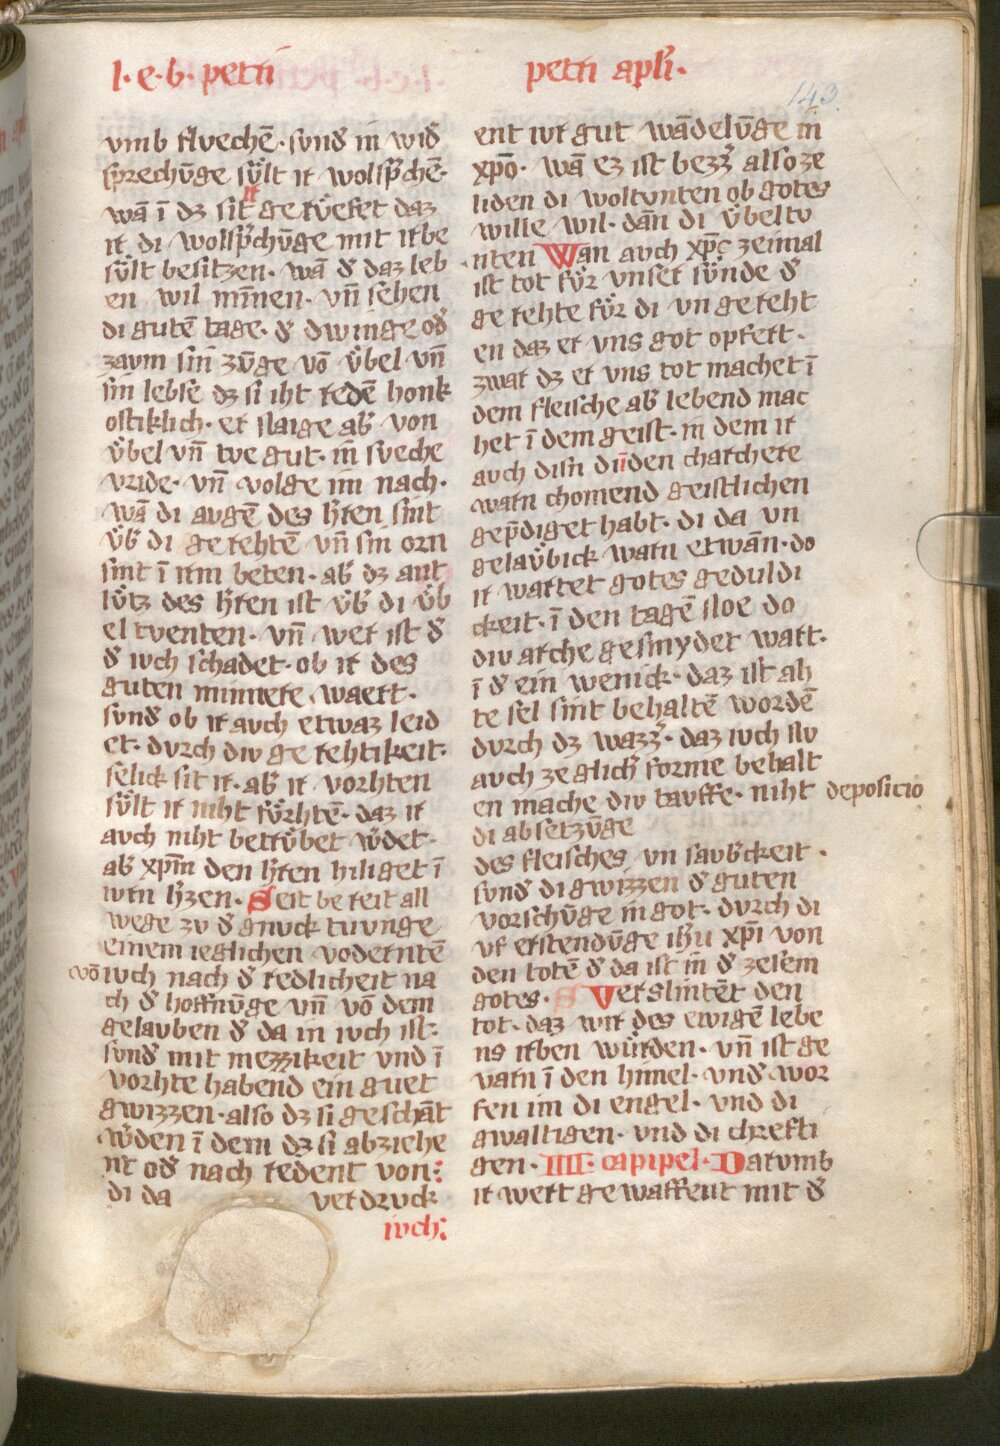 1·e·b· petri
petri apl'i·
143
vmb flvechē· svnd̾ in wid̾
sprechv̄ge sv̊lt ir wolsp̾chē·
wā ī dz sit ir getv̊efet daz
ir di wolsp̾chv̄ge mit irbe
sv̊lt besitzen· wā d̾ daz leb
en wil mīnen· vn̄ sehen
di gutē tage· d̾ dwinge od̾
zavm sin zv̄ge vō v̊bel vn̄
sin lebse dz si iht redē honk
ostiklich· er slaige ab̾ von
v̊bel vn̄ tve gut· in sveche
vride· vn̄ volge im nach·
wā di avgē des h̾ren sint
v̊b̾ di gerehtē vn̄ sin orn
sint ī irm beten· ab̾ dz ant
lv̊tz des h̾ren ist v̊b̾ di v̊b
el tventen· vn̄ wer ist d̾
d̾ ivch schadet· ob ir des
guten minnere waert·
svnd̾ ob ir avch etwaz leid
et· dvrch div gerehtikeit·
selick sit ir· ab̾ ir vorhten
sv̊lt ir niht fv̊rhtē· daz ir
avch niht betrv̊bet w̾det·
ab̾ xp̄m den h̾ren hiliget ī
ivrn h̾zen· Seit bereit all
wege zv d̾ gnvck tvvnge
einem ieglichen voderntē
vō ivch nach d̾ redlicheit na
ch d̾ hoffnv̄ge vn̄ vō dem
gelavben d̾ da in ivch ist:
svnd̾ mit mezzikeit vnd ī
vorhte habend ein guet
gwizzen· also dz si geschāt
w̾den ī dem dz si abziehe
nt od̾ nach redent von:
di da verdruck
ivch:
ent ivr gut wādelv̄ge in
xp̄o· wā ez ist bezz̾ also ze
liden di woltvnten ob gotes
wille wil· dān di v̊beltv
nten Wan avch xp̄c zeimal
ist tot fv̊r vnser sv̊nde d̾
gerehte fv̊r di vngereht
en daz er vns got opfert·
zwar dz er vns tot machet ī
dem fleische ab̾ lebend mac
het ī dem geist· in dem ir
avch disn dinden charchere
warn chomend geistlichen
gep̾diget habt· di da vn
gelav̊bick warn etwān· do
ir wartet gotes geduldi
ckeit· ī den tagē noe do
div arche gesmydet wart·
ī d̾ ein wenick· daz ist ah
te sel sint behaltē wordē
dvrch dz wazz̾· daz ivch nv
avch zeglich̾ forme behalt
en mache div tavffe· niht deposicio
di absetzv̄ge
des fleisches vn savb̾ckeit·
svnd̾ di gwizzen d̾ guten
vorschv̄ge in got· dvrch di
vf erstendv̄ge ih̄u xp̄i von
den totē d̾ da ist in d̾ zesem
gotes· Verslintēt den
tot· daz wir des ewigē lebe
ns irben wv̊rden· vn̄ ist ge
varn ī den himel· vnd̾ wor
fen im di engel· vnd di
gwaltigen· vnd di chrefti
gen· IIII· capipel· Darvmb
ir wert gewaffent mit d̾